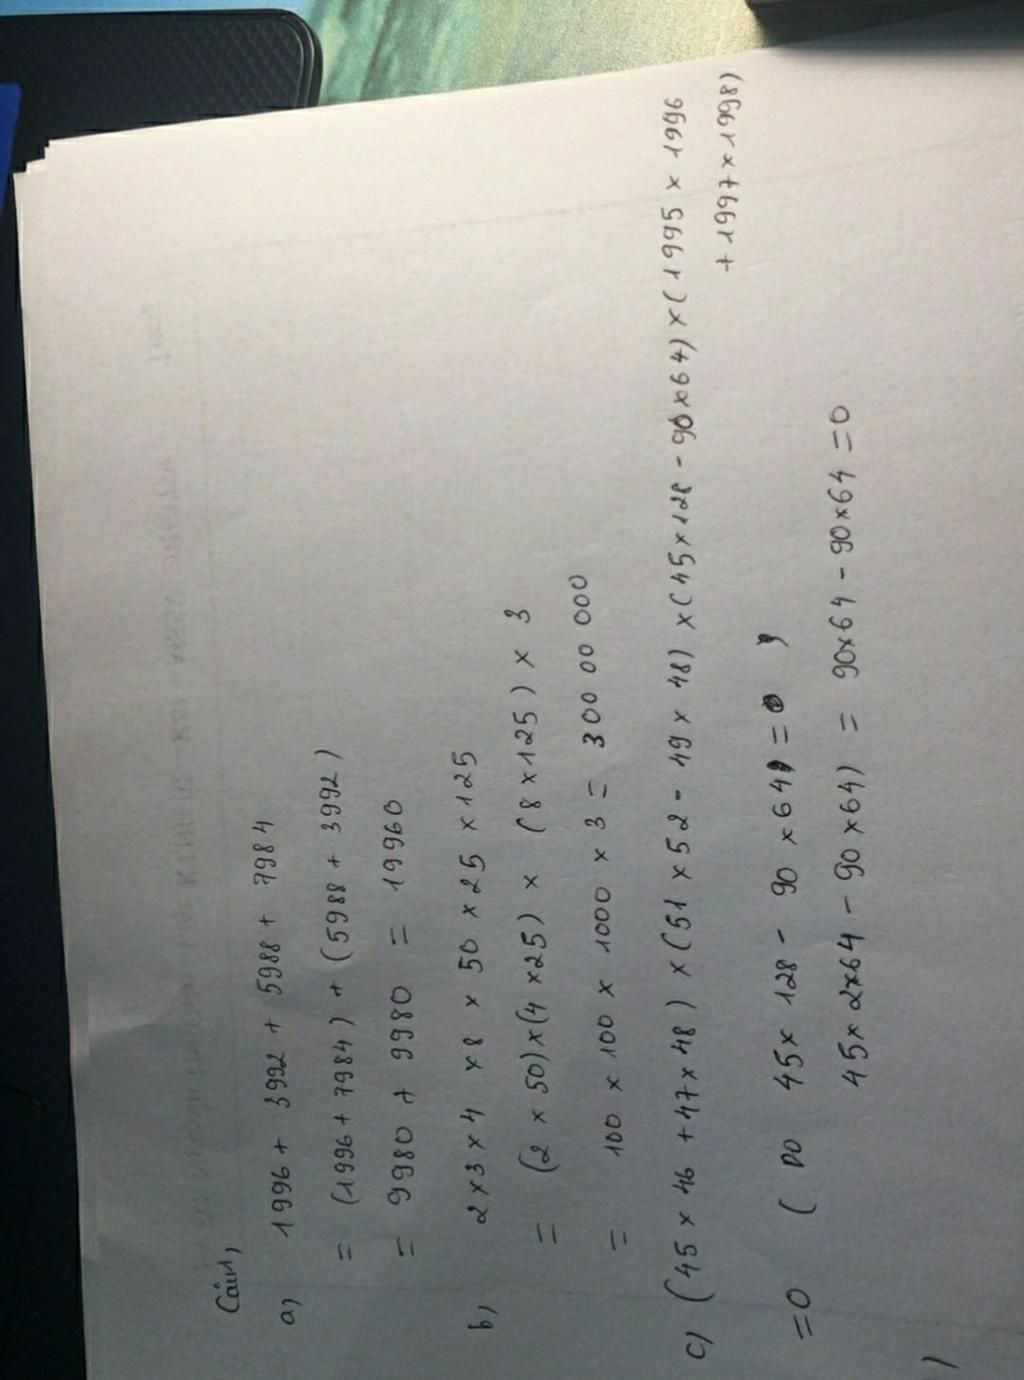 Câu1,
a) 1996 + 3992 + 5988 + 7984
= (1996 + 7984) + (5988 + 3992)
= 9980 + 9980 = 19960
b) 2 x 3 x 4 x 8 x 50 x 25 x 125
= (2 x 50) x (4 x 25) x (8 x 125) x 3
= 100 x 100 x 1000 x 3 = 300 00 000
c) (45 x 46 + 47 x 48) x (51 x 52 - 49 x 48) x (45 x 128 - 90 x 64) x (1995 x 1996
+ 1997 x 1998)
= 0 ( Do 45 x 128 - 90 x 64) = 0 ,
45 x 2 x 64 - 90 x 64) = 90 x 64 - 90 x 64 = 0
)